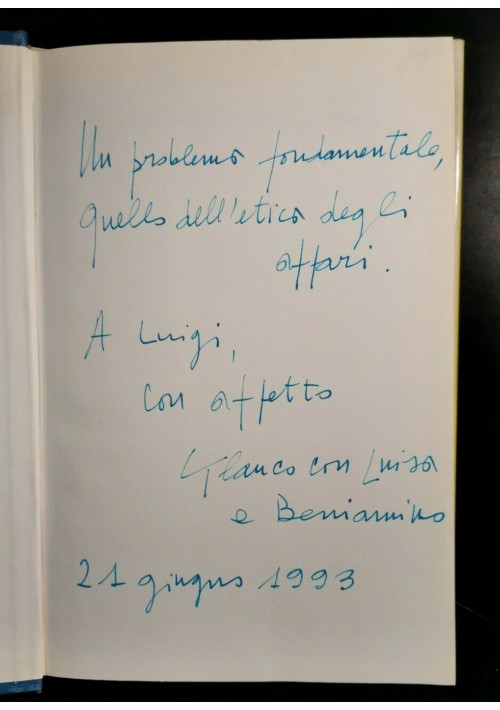 Un problema fondamentale,
quello dell'etica degli
affari.
A Luigi,
con affetto
Glauco con Luisa
e Beniamino
21 giugno 1993